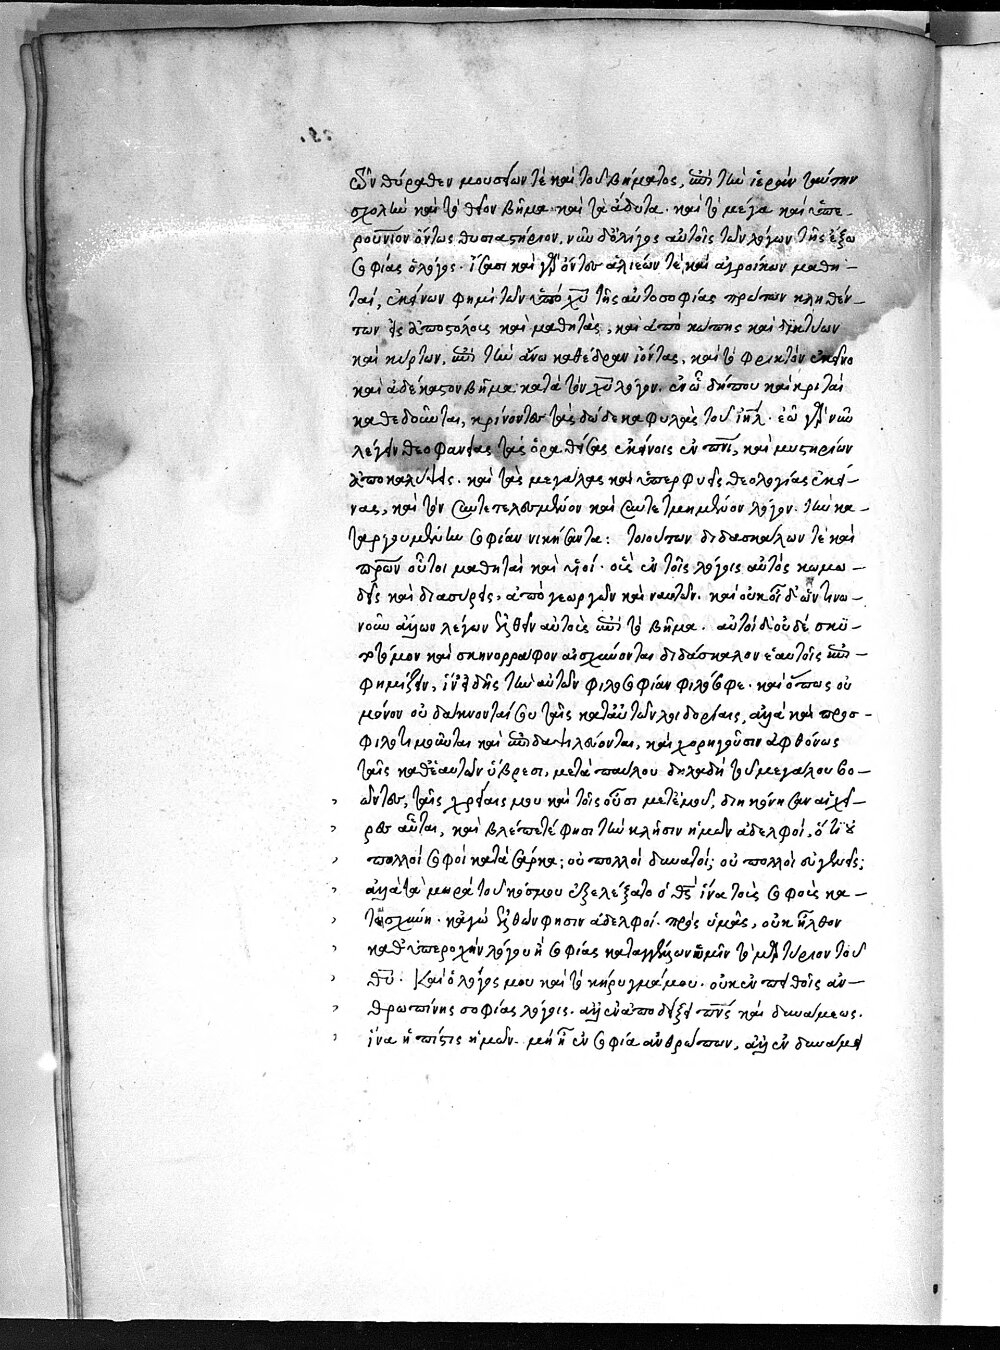 ὧν θύραθεν μουσείων τὲ καὶ τοῦ βήματος, ἐπὶ τὴν ἱερὰν ταύτην
σχολὴν καὶ τὸ θεῖον βῆμα καὶ τὰ ἄδυτα· καὶ τὸ μέγα καὶ ὑπε-
ρουράνιον ὄντως θυσιαστήριον. νῦν δ' ὀλίγος αὐτοῖς τῶν λόγων τῆς ἔξω
σοφίας ὁ λόγος· εἰσὶ καὶ γὰρ ὄντως ἁλιέων τὲ καὶ ἀγροίκων μαθη-
ταί, ἐκείνων φημὶ τῶν ὑπὸ χυ τῆς αὐτοσοφίας πρώτων κληθέν-
των εἰς ἀποστόλους καὶ μαθητὰς, καὶ ἀπὸ κώπης καὶ δικτύων
καὶ κύρτων, ἐπὶ τὴν ἄνω καθέδραν ἰόντας, καὶ τὸ φρικτὸν ἐκεῖνο
καὶ ἀδέκαστον βῆμα κατὰ τὸν χυ λόγον. ἐν ᾧ δήπου καὶ κριταὶ
καθεδοῦνται, κρίνοντες τὰς δώδεκα φυλὰς τοῦ ιηλ. ἐῶ γὰρ νῦν
λέγειν θεοφανείας τὰς ὁραθείσας ἐκείνοις ἐν πνι, καὶ μυστηρίων
ἀποκαλύψεις· καὶ τὰς μεγάλας καὶ ὑπερφυεῖς θεολογίας ἐκεί-
νας, καὶ τὸν συντετελεσμένον καὶ συντετμημένον λόγον· τὴν κα-
ταργουμένην σοφίαν νικήσαντα: τοιούτων διδασκάλων τὲ καὶ
πρων οὗτοι μαθηταὶ καὶ υἱοί· οὓς ἐν τοῖς λόγοις αὐτὸς κωμω-
δεῖς καὶ διασύρεις, ἀπὸ γεωργῶν καὶ ναυτῶν. καὶ οὐκ οἶδ' ὧν τινω-
νοῦν ἄλλων λέγων ἐλθεῖν αὐτοὺς ἐπὶ τὸ βῆμα. αὐτοὶ δ' οὐδὲ σκυ-
τοτόμον καὶ σκηνορράφον αἰσχύνονται διδάσκαλον ἑαυτοῖς ἐπι-
φημίζειν, ἵν' εἰδῇς τὴν αὐτῶν φιλοσοφίαν φιλόσοφε· καὶ ὅπως οὐ
μόνον οὐ δάκνονταί σου ταῖς κατ' αὐτῶν λοιδορίαις, ἀλλὰ καὶ προσ-
φιλοτιμοῦνται καὶ ἐπιδαψιλεύονται, καὶ χορηγοῦσιν ἀφθόνως
ταῖς καθ' ἑαυτῶν ὕβρεσι, μετὰ παύλου δηλαδὴ τοῦ μεγάλου βο-
ῶντος, ταῖς χρείαις μου καὶ τοῖς οὖσι μετ' ἐμοῦ, διηκόνησαν αἱ χεῖ-
ρες αὗται, καὶ βλέπετέ φησι τὴν κλῆσιν ἡμῶν ἀδελφοί, ὅτι οὐ
πολλοὶ σοφοὶ κατὰ σάρκα; οὐ πολλοὶ δυνατοί; οὐ πολλοὶ εὐγενεῖς;
ἀλλὰ τὰ μωρὰ τοῦ κόσμου ἐξελέξατο ὁ θς ἵνα τοὺς σοφοὺς κα-
ταισχύνῃ· κἀγὼ ἐλθών φησιν ἀδελφοί· πρὸς ὑμᾶς, οὐκ ἦλθον
καθ' ὑπεροχὴν λόγου ἢ σοφίας καταγγέλλων ὑμῖν τὸ μαρτύριον τοῦ
θυ. Καὶ ὁ λόγος μου καὶ τὸ κήρυγμά μου· οὐκ ἐν πειθοῖς ἀν-
θρωπίνης σοφίας λόγοις· ἀλλ' ἐν ἀποδείξει πνς καὶ δυνάμεως.
ἵνα ἡ πίστις ἡμῶν· μὴ ᾖ ἐν σοφίᾳ ἀνθρώπων, ἀλλ' ἐν δυνάμει